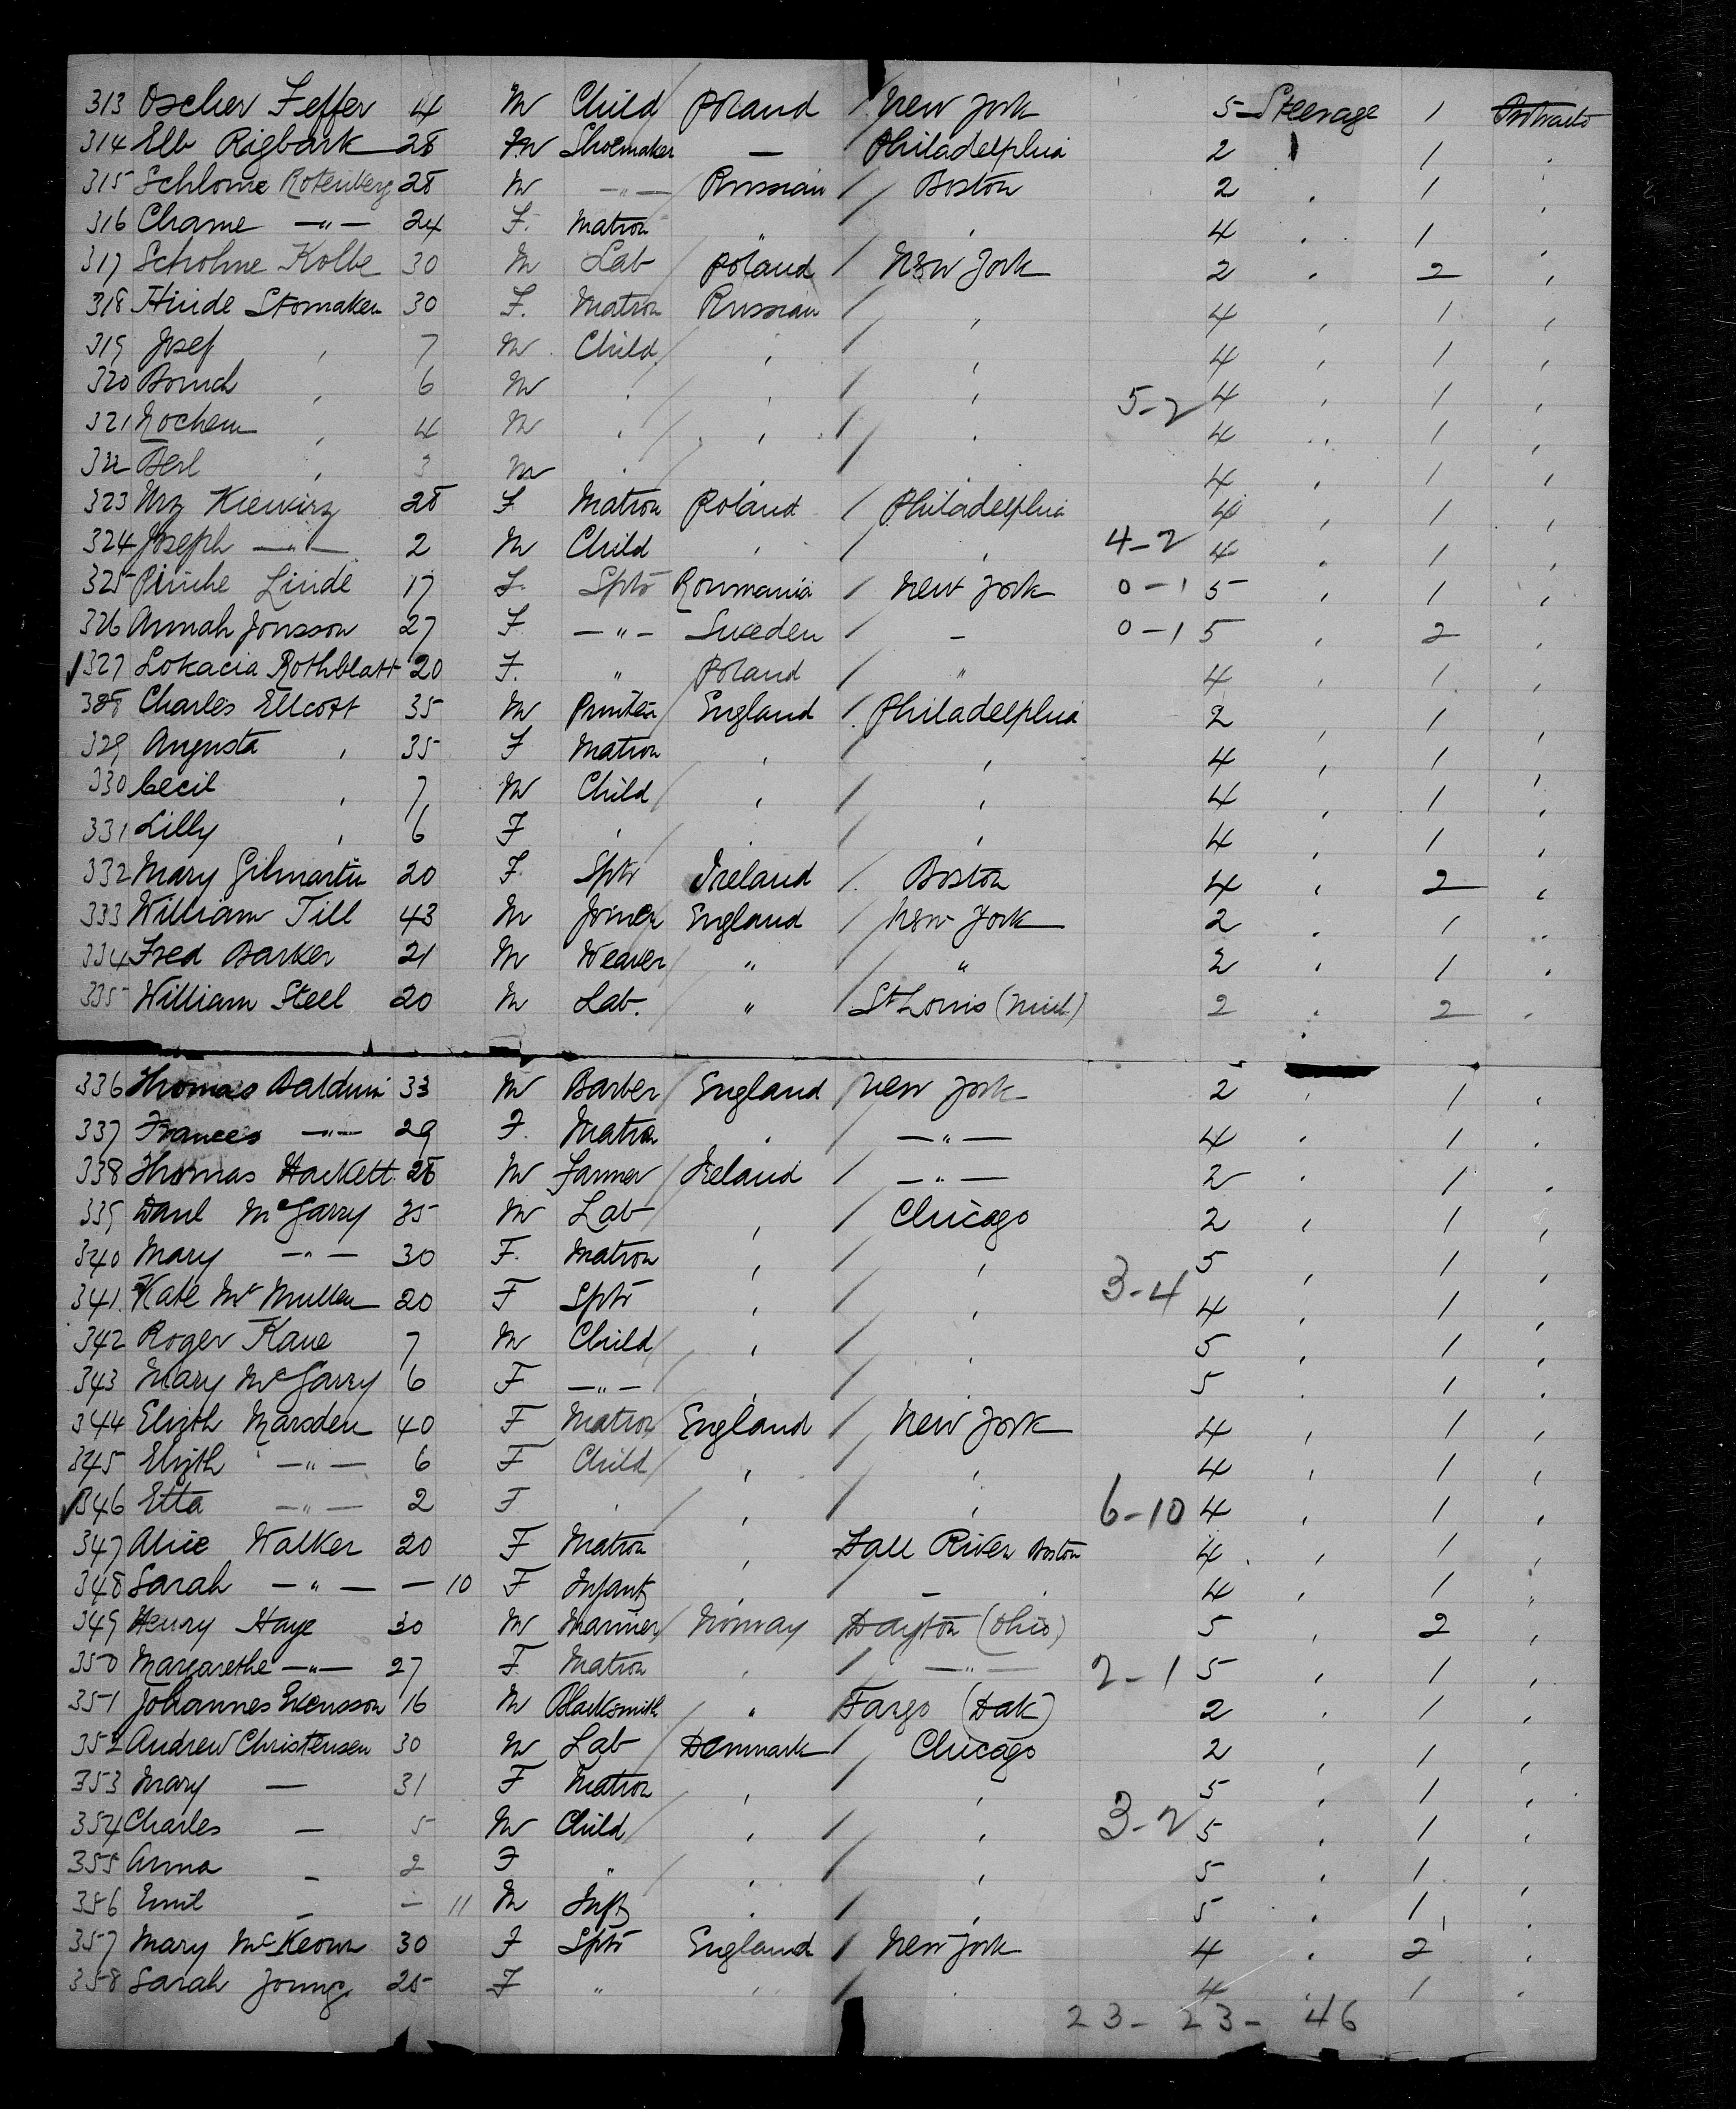 313 Oscher Feffer 4 M Child Poland / New York 5 Steerage 1 Protracto
314 Elb Rigbark 28 M Shoemaker — Philadelphia 2 1
315 Schlome Rotenberg 28 M —"— Russian / Boston 2 1
316 Chame —"— 24 F. Matron " 4 1
317 Scholme Kolbe 30 M Lab Poland / New York 2 2
318 Hinde Stomaker 30 F. Matron Russian / , 4 1
319 Josef , 7 M Child / , / , 4 1
320 Boruch , 6 M , / , / , 5-2 4 1
321 Nochem , 4 M , / , / , 4 1
322 Berl , 3 M , 4 1
323 Kiewirz 28 F Matron Poland / Philadelphia 4 1
324 Joseph —"— 2 M Child , / , 4-2 4 1
325 Pinche Linde 17 F. Sptr Roumania / New York 0-1 5 1
326 Annah Jonsson 27 F —"— Sweden / - 0-1 5 2
327 Lokacia Rothblatt 20 F. " Poland / " 4 1
328 Charles Ellcott 35 M Printer England / Philadelphia 2 1
329 Augusta , 35 F Matron , / , 4 1
330 Cecil , 7 M Child / , / , 4 1
331 Lilly , 6 F , / , / , 4 1
332 Mary Gilmartin 20 F. Sptr Ireland / Boston 4 2
333 William Till 43 M Joiner England / New York 2 1
334 Fred Barker 21 M Weaver " / " 2 1
335 William Steel 20 M Lab. " St Louis (Mich) 2 2
336 Thomas Baldwin 33 M Barber / England / New York 2 1
337 Frances —"— 29 F. Matron , / —"— 4 1
338 Thomas Hackett 28 M Farmer / Ireland / —"— 2 1
339 Danl McGarry 35 M Lab , / Chicago 2 1
340 Mary —"— 30 F. Matron , / , 5 1
341 Kate McMullen 20 F Sptr , / , 3-4 4 1
342 Roger Kane 7 M Child / , / , 5 1
343 Mary McGarry 6 F —"— / , / , 5 1
344 Elizth Marsden 40 F Matron England / New York 4 1
345 Elizth —"— 6 F Child / , / , 4 1
346 Etta —"— 2 F , / , / , 6-10 4 1
347 Alice Walker 20 F Matron , Fall River Boston 4 1
348 Sarah —"— — 10 F Infant , / - 4 1
349 Henry Haye 30 M Mariner / Norway Dayton (Ohio) 5 2
350 Margarethe —"— 27 F Matron , / —"— 2-1 5 1
351 Johannes Svensson 16 M Blacksmith " Fargo (Dak) 2 1
352 Andrew Christensen 30 M Lab / Denmark / Chicago 2 1
353 Mary — 31 F Matron , / , 5 1
354 Charles — 5 M Child / , / , 3-2 5 1
355 Anna - 2 F " / , / , 5 1
356 Emil - — 11 M Inft , / , 5 1
357 Mary McKeown 30 F Sptr England / New York 4 2
358 Sarah Young 25 F " , / , 4 1
23- 23- 46